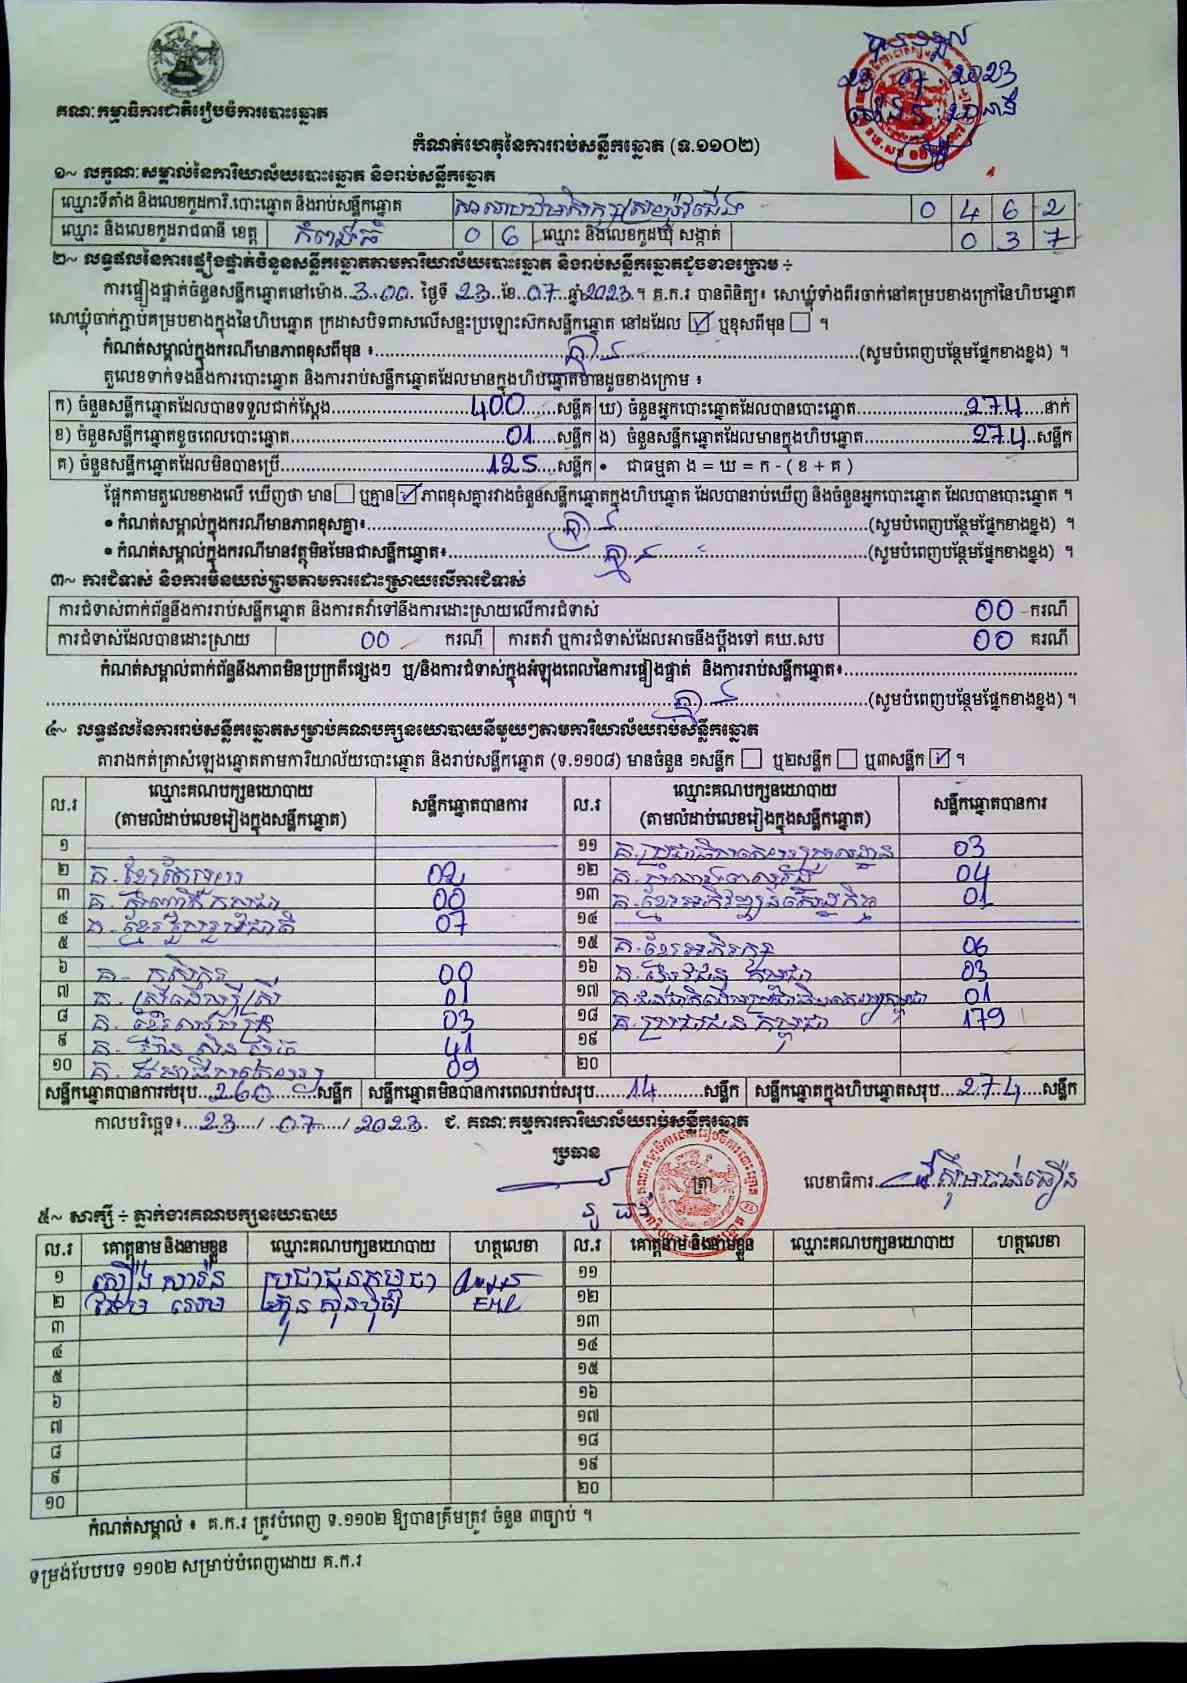 គណៈកម្មាធិការជាតិរៀបចំការបោះឆ្នោត
23 07 2023
កំណត់ហេតុនៃការរាប់សន្លឹកឆ្នោត (ទ.១១០២)
១~ លក្ខណៈសម្គាល់នៃការិយាល័យបោះឆ្នោត និងរាប់សន្លឹកឆ្នោត
ឈ្មោះទីតាំង និងលេខកូដការិ.បោះឆ្នោត និងរាប់សន្លឹកឆ្នោត 0 4 6 2
ឈ្មោះ និងលេខកូដរាជធានី ខេត្ត កំពង់ធំ 0 6 ឈ្មោះ និងលេខកូដឃុំ សង្កាត់ 0 3 7
២~ លទ្ធផលនៃការផ្ទៀងផ្ទាត់ចំនួនសន្លឹកឆ្នោតតាមការិយាល័យបោះឆ្នោត និងរាប់សន្លឹកឆ្នោតដូចខាងក្រោម ÷
ការផ្ទៀងផ្ទាត់ចំនួនសន្លឹកឆ្នោតនៅម៉ោង 3:00 ថ្ងៃទី 23 ខែ 07 ឆ្នាំ 2023 ។ គ.ក.រ បានពិនិត្យ៖ សោឃ្លុំទាំងពីរចាក់នៅគម្របខាងក្រៅនៃហិបឆ្នោត
សោឃ្លុំចាក់ភ្ជាប់គម្របខាងក្នុងនៃហិបឆ្នោត ក្រដាសបិទពាសលើសន្ទះប្រឡោះស៊កសន្លឹកឆ្នោត នៅដដែល ☑ ឬខុសពីមុន ☐ ។
កំណត់សម្គាល់ក្នុងករណីមានភាពខុសពីមុន ៖ គ្មាន (សូមបំពេញបន្ថែមផ្នែកខាងខ្នង) ។
តួលេខទាក់ទងនឹងការបោះឆ្នោត និងការរាប់សន្លឹកឆ្នោតដែលមានក្នុងហិបឆ្នោតមានដូចខាងក្រោម ៖
ក) ចំនួនសន្លឹកឆ្នោតដែលបានទទួលជាក់ស្ដែង 400 សន្លឹក ឃ) ចំនួនអ្នកបោះឆ្នោតដែលបានបោះឆ្នោត 274 នាក់
ខ) ចំនួនសន្លឹកឆ្នោតខូចពេលបោះឆ្នោត 01 សន្លឹក ង) ចំនួនសន្លឹកឆ្នោតដែលមានក្នុងហិបឆ្នោត 274 សន្លឹក
គ) ចំនួនសន្លឹកឆ្នោតដែលមិនបានប្រើ 125 សន្លឹក • ជាធម្មតា ង = ឃ = ក - ( ខ + គ )
ផ្អែកតាមតួលេខខាងលើ ឃើញថា មាន ☐ ឬគ្មាន ☑ ភាពខុសគ្នារវាងចំនួនសន្លឹកឆ្នោតក្នុងហិបឆ្នោត ដែលបានរាប់ឃើញ និងចំនួនអ្នកបោះឆ្នោត ដែលបានបោះឆ្នោត ។
• កំណត់សម្គាល់ក្នុងករណីមានភាពខុសគ្នា៖ គ្មាន (សូមបំពេញបន្ថែមផ្នែកខាងខ្នង) ។
• កំណត់សម្គាល់ក្នុងករណីមានវត្ថុមិនមែនជាសន្លឹកឆ្នោត៖ គ្មាន (សូមបំពេញបន្ថែមផ្នែកខាងខ្នង) ។
៣~ ការជំទាស់ និងការមិនយល់ព្រមតាមការដោះស្រាយលើការជំទាស់
ការជំទាស់ពាក់ព័ន្ធនឹងការរាប់សន្លឹកឆ្នោត និងការតវ៉ាទៅនឹងការដោះស្រាយលើការជំទាស់ 00 ករណី
ការជំទាស់ដែលបានដោះស្រាយ 00 ករណី ការតវ៉ា ឬការជំទាស់ដែលអាចនឹងប្ដឹងទៅ គឃ.សប 00 ករណី
កំណត់សម្គាល់ពាក់ព័ន្ធនឹងភាពមិនប្រក្រតីផ្សេងៗ ឬ/និងការជំទាស់ក្នុងអំឡុងពេលនៃការផ្ទៀងផ្ទាត់ និងការរាប់សន្លឹកឆ្នោត៖
គ្មាន (សូមបំពេញបន្ថែមផ្នែកខាងខ្នង) ។
៤~ លទ្ធផលនៃការរាប់សន្លឹកឆ្នោតសម្រាប់គណបក្សនយោបាយនីមួយៗតាមការិយាល័យរាប់សន្លឹកឆ្នោត
តារាងកត់ត្រាសំឡេងឆ្នោតតាមការិយាល័យបោះឆ្នោត និងរាប់សន្លឹកឆ្នោត (ទ.១១០៨) មានចំនួន ១សន្លឹក ☐ ឬ២សន្លឹក ☐ ឬ៣សន្លឹក ☑ ។
ល.រ ឈ្មោះគណបក្សនយោបាយ (តាមលំដាប់លេខរៀងក្នុងសន្លឹកឆ្នោត) សន្លឹកឆ្នោតបានការ ល.រ ឈ្មោះគណបក្សនយោបាយ (តាមលំដាប់លេខរៀងក្នុងសន្លឹកឆ្នោត) សន្លឹកឆ្នោតបានការ
១ ១១ 03
២ 02 ១២ 04
៣ 00 ១៣ 01
៤ គ. ខ្មែររួបរួមជាតិ 07 ១៤
៥ ១៥ 06
៦ គ. កសិករ 00 ១៦ 03
៧ 01 ១៧ 01
៨ 03 ១៨ គ. ប្រជាជនកម្ពុជា 179
៩ គ. ហ៊្វុនស៊ិនប៉ិច 41 ១៩
១០ 09 ២០
សន្លឹកឆ្នោតបានការសរុប 260 សន្លឹក សន្លឹកឆ្នោតមិនបានការពេលរាប់សរុប 14 សន្លឹក សន្លឹកឆ្នោតក្នុងហិបឆ្នោតសរុប 274 សន្លឹក
កាលបរិច្ឆេទ៖ 23 / 07 / 2023 ជ. គណៈកម្មការការិយាល័យរាប់សន្លឹកឆ្នោត
ប្រធាន ត្រា លេខាធិការ
៥~ សាក្សី ÷ ភ្នាក់ងារគណបក្សនយោបាយ
ល.រ គោត្តនាម និងនាមខ្លួន ឈ្មោះគណបក្សនយោបាយ ហត្ថលេខា ល.រ គោត្តនាម និងនាមខ្លួន ឈ្មោះគណបក្សនយោបាយ ហត្ថលេខា
១ ប្រជាជនកម្ពុជា ១១
២ ហ៊្វុនស៊ិនប៉ិច ១២
៣ ១៣
៤ ១៤
៥ ១៥
៦ ១៦
៧ ១៧
៨ ១៨
៩ ១៩
១០ ២០
កំណត់សម្គាល់ ៖ គ.ក.រ ត្រូវបំពេញ ទ.១១០២ ឱ្យបានត្រឹមត្រូវ ចំនួន ៣ច្បាប់ ។
ទម្រង់បែបបទ ១១០២ សម្រាប់បំពេញដោយ គ.ក.រ